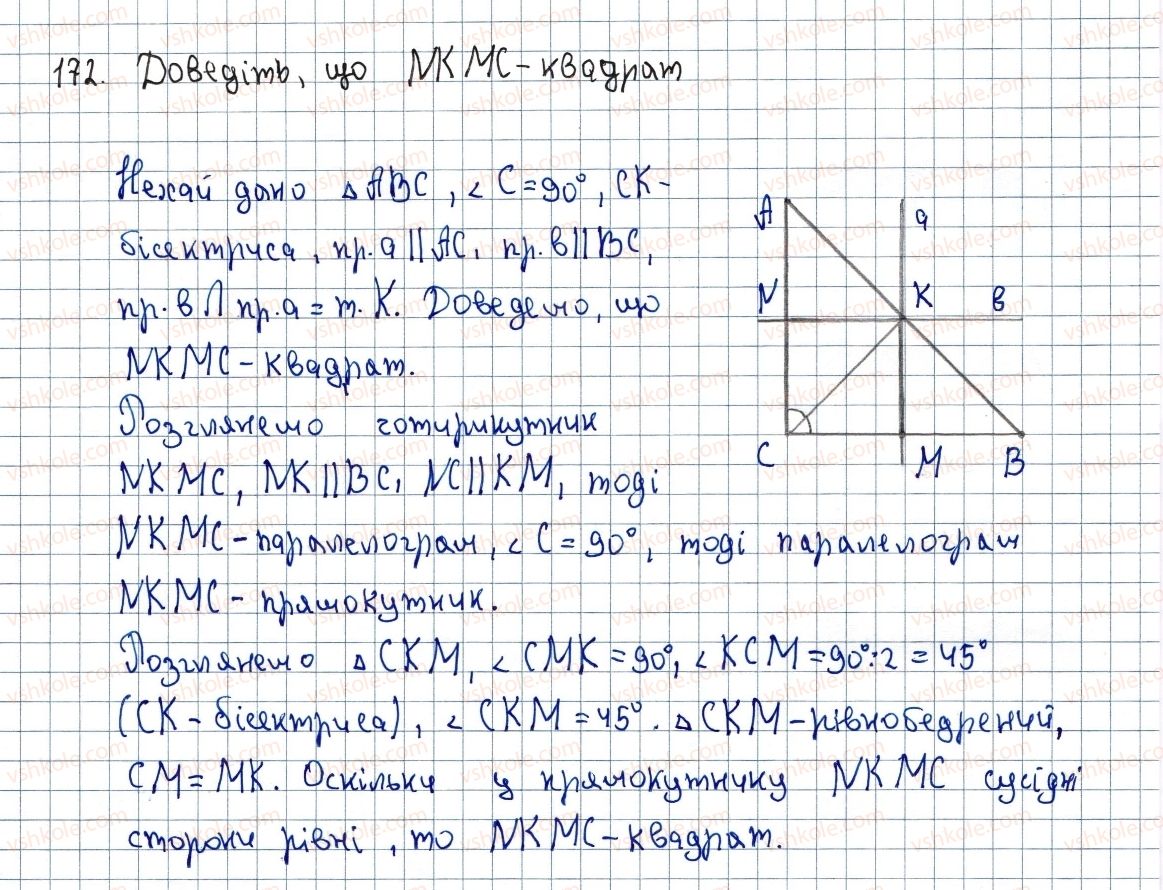 172. Доведіть, що NKMC - квадрат
Нехай дано △ABC, ∠C = 90°, CK -
бісектриса, пр. a || AC, пр. b || BC,
пр. b ∩ пр. a = т. K. Доведемо, що
NKMC - квадрат.
Розглянемо чотирикутник
NKMC, NK || BC, NC || KM, тоді
NKMC - паралелограм, ∠C = 90°, тоді паралелограм
NKMC - прямокутник.
Розглянемо △CKM, ∠CMK = 90°, ∠KCM = 90°:2 = 45°
(CK - бісектриса), ∠CKM = 45°. △CKM - рівнобедрений,
CM = MK. Оскільки у прямокутнику NKMC сусідні
сторони рівні, то NKMC - квадрат.
A a
N K b
C M B
vshkole.com